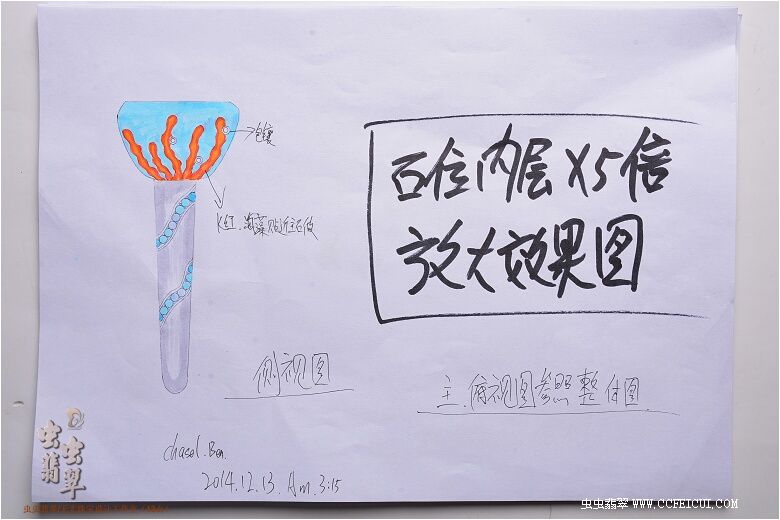 包镶
K红.海藻贴近石位
石位内层X5倍
放大效果图
侧视图
主.俯视图参照整体图
chasel.Ben.
2014.12.13. Am.3:15
虫虫翡翠
虫虫翡翠 WWW.CCFEICUI.COM